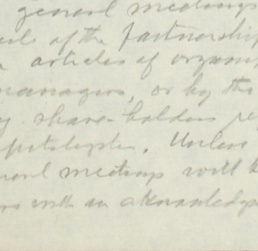 general meetings
of the partnership
articles of organi
managers, or by the
share-holders re
Unless
meetings will b
with an acknowledg